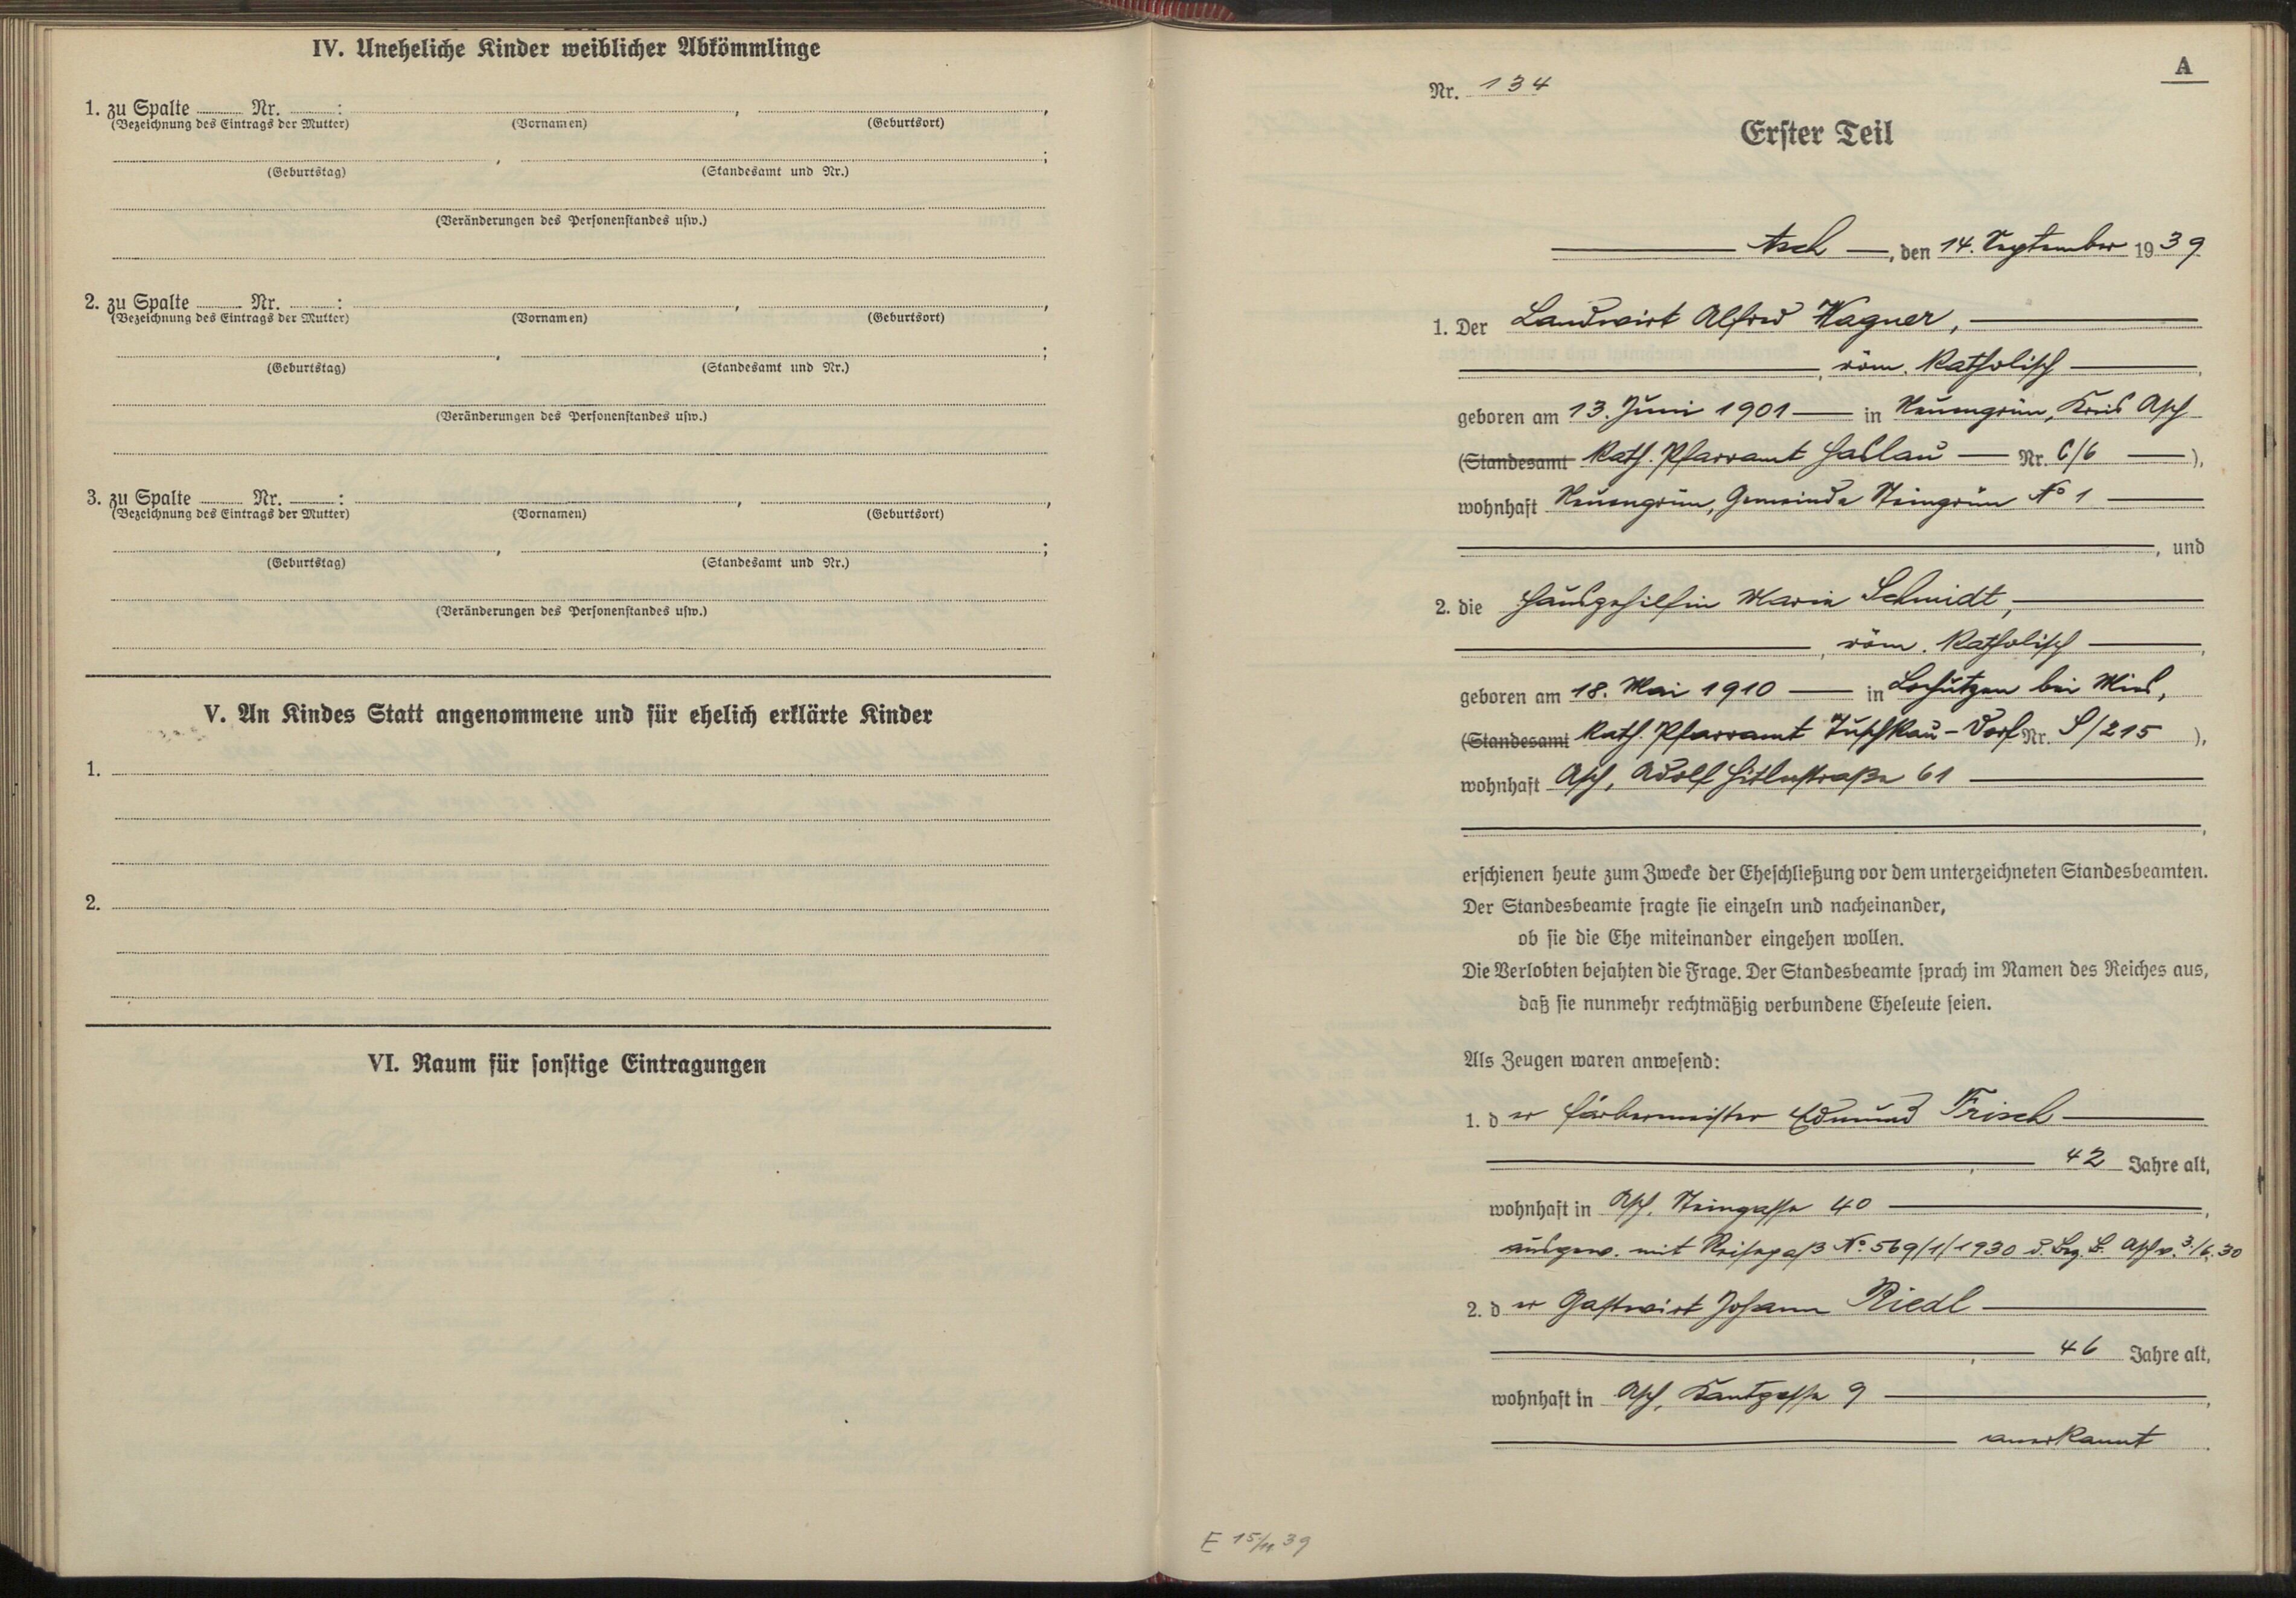 IV. Uneheliche Kinder weiblicher Abkömmlinge
1. zu Spalte Nr. : , ,
(Bezeichnung des Eintrags der Mutter) (Vornamen) (Geburtsort)
, ;
(Geburtstag) (Standesamt und Nr.)
(Veränderungen des Personenstandes usw.)
2. zu Spalte Nr. : , ,
(Bezeichnung des Eintrags der Mutter) (Vornamen) (Geburtsort)
, ;
(Geburtstag) (Standesamt und Nr.)
(Veränderungen des Personenstandes usw.)
3. zu Spalte Nr. : , ,
(Bezeichnung des Eintrags der Mutter) (Vornamen) (Geburtsort)
, ;
(Geburtstag) (Standesamt und Nr.)
(Veränderungen des Personenstandes usw.)
V. An Kindes Statt angenommene und für ehelich erklärte Kinder
1.
2.
VI. Raum für sonstige Eintragungen
A
Nr. 134
Erster Teil
Asch, den 14. September 1939
1. Der Landwirt Alfred Wagner,
, röm. katholisch,
geboren am 13. Juni 1901 in Neuengrün, Kreis Asch
(Standesamt Kath. Pfarramt Haslau Nr. C/6),
wohnhaft Neuengrün, Gemeinde Steingrün No 1
, und
2. die Hausgehilfin Marie Schmidt,
, röm. katholisch,
geboren am 18. Mai 1910 in Lochutzen bei Mies,
(Standesamt Kath. Pfarramt Tuschkau-Dorf Nr. S/215),
wohnhaft Asch, Adolf Hitlerstraße 61
,
erschienen heute zum Zwecke der Eheschließung vor dem unterzeichneten Standesbeamten.
Der Standesbeamte fragte sie einzeln und nacheinander,
ob sie die Ehe miteinander eingehen wollen.
Die Verlobten bejahten die Frage. Der Standesbeamte sprach im Namen des Reiches aus,
daß sie nunmehr rechtmäßig verbundene Eheleute seien.
Als Zeugen waren anwesend:
1. der Färbermeister Edmund Frisch
, 42 Jahre alt,
wohnhaft in Asch, Steingasse 40,
ausgew. mit Reisepaß No. 569/1/1930 d. Bez. B. Asch v. 3./6. 30
2. der Gastwirt Johann Riedl
, 46 Jahre alt,
wohnhaft in Asch, Kantgasse 9,
anerkannt.
E 15/11. 39